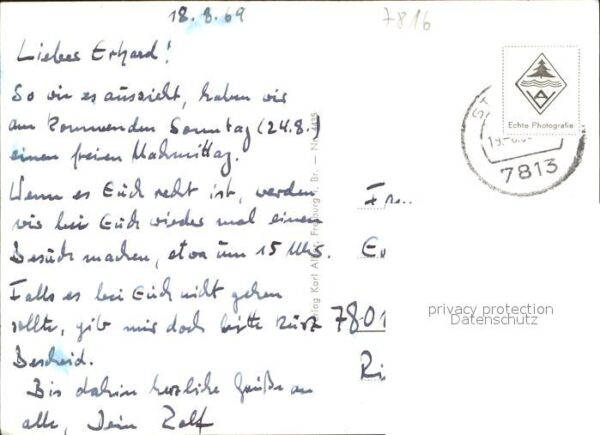 18.8.69
7816
Lieber Erhard!
So wie es aussieht, haben wir
am kommenden Sonntag (24.8.)
einen freien Nachmittag.
Wenn es Euch recht ist, werden
wir bei Euch wieder mal einen
Besuch machen, etwa um 15 Uhr.
Falls es bei Euch nicht gehen
sollte, gib mir doch bitte kurz
Bescheid.
Bis dahin herzliche Grüße an
alle, Dein Rolf
Verlag Karl Alber, Freiburg i. Br. — Nr.
Echte Photografie
7813
780
privacy protection
Datenschutz